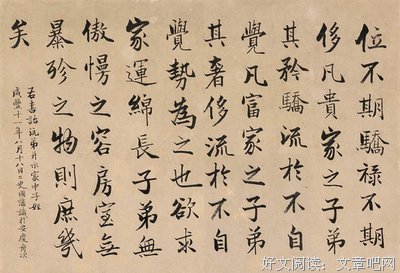 位不期驕祿不期
侈凡貴家之子弟
其矜驕流於不自
覺凡富家之子弟
其奢侈流於不自
覺勢為之也欲求
家運綿長子弟無
傲慢之容房室無
暴殄之物則庶幾
矣
右書詒沅弟并示家中子姪
咸豐十一年八月十八日 國藩識於安慶舟次
好文阅读：文章吧网